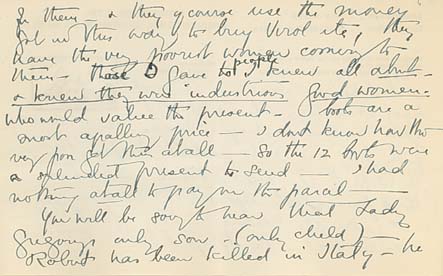 for them — & they of course use the money
got in this way to buy Virol etc, they
have the very poorest women coming to
them — those I gave to people I knew all about —
& knew they were industrious good women —
who would value the present — boots are a
most apalling price — I dont know how the
very poor get them atall — so the 12 boots were
a splendid present to send — I had
nothing atall to pay on the parcel —
You will be sorry to hear that Lady
Gregorys only son — (only child) —
Robert has been killed in Italy — he